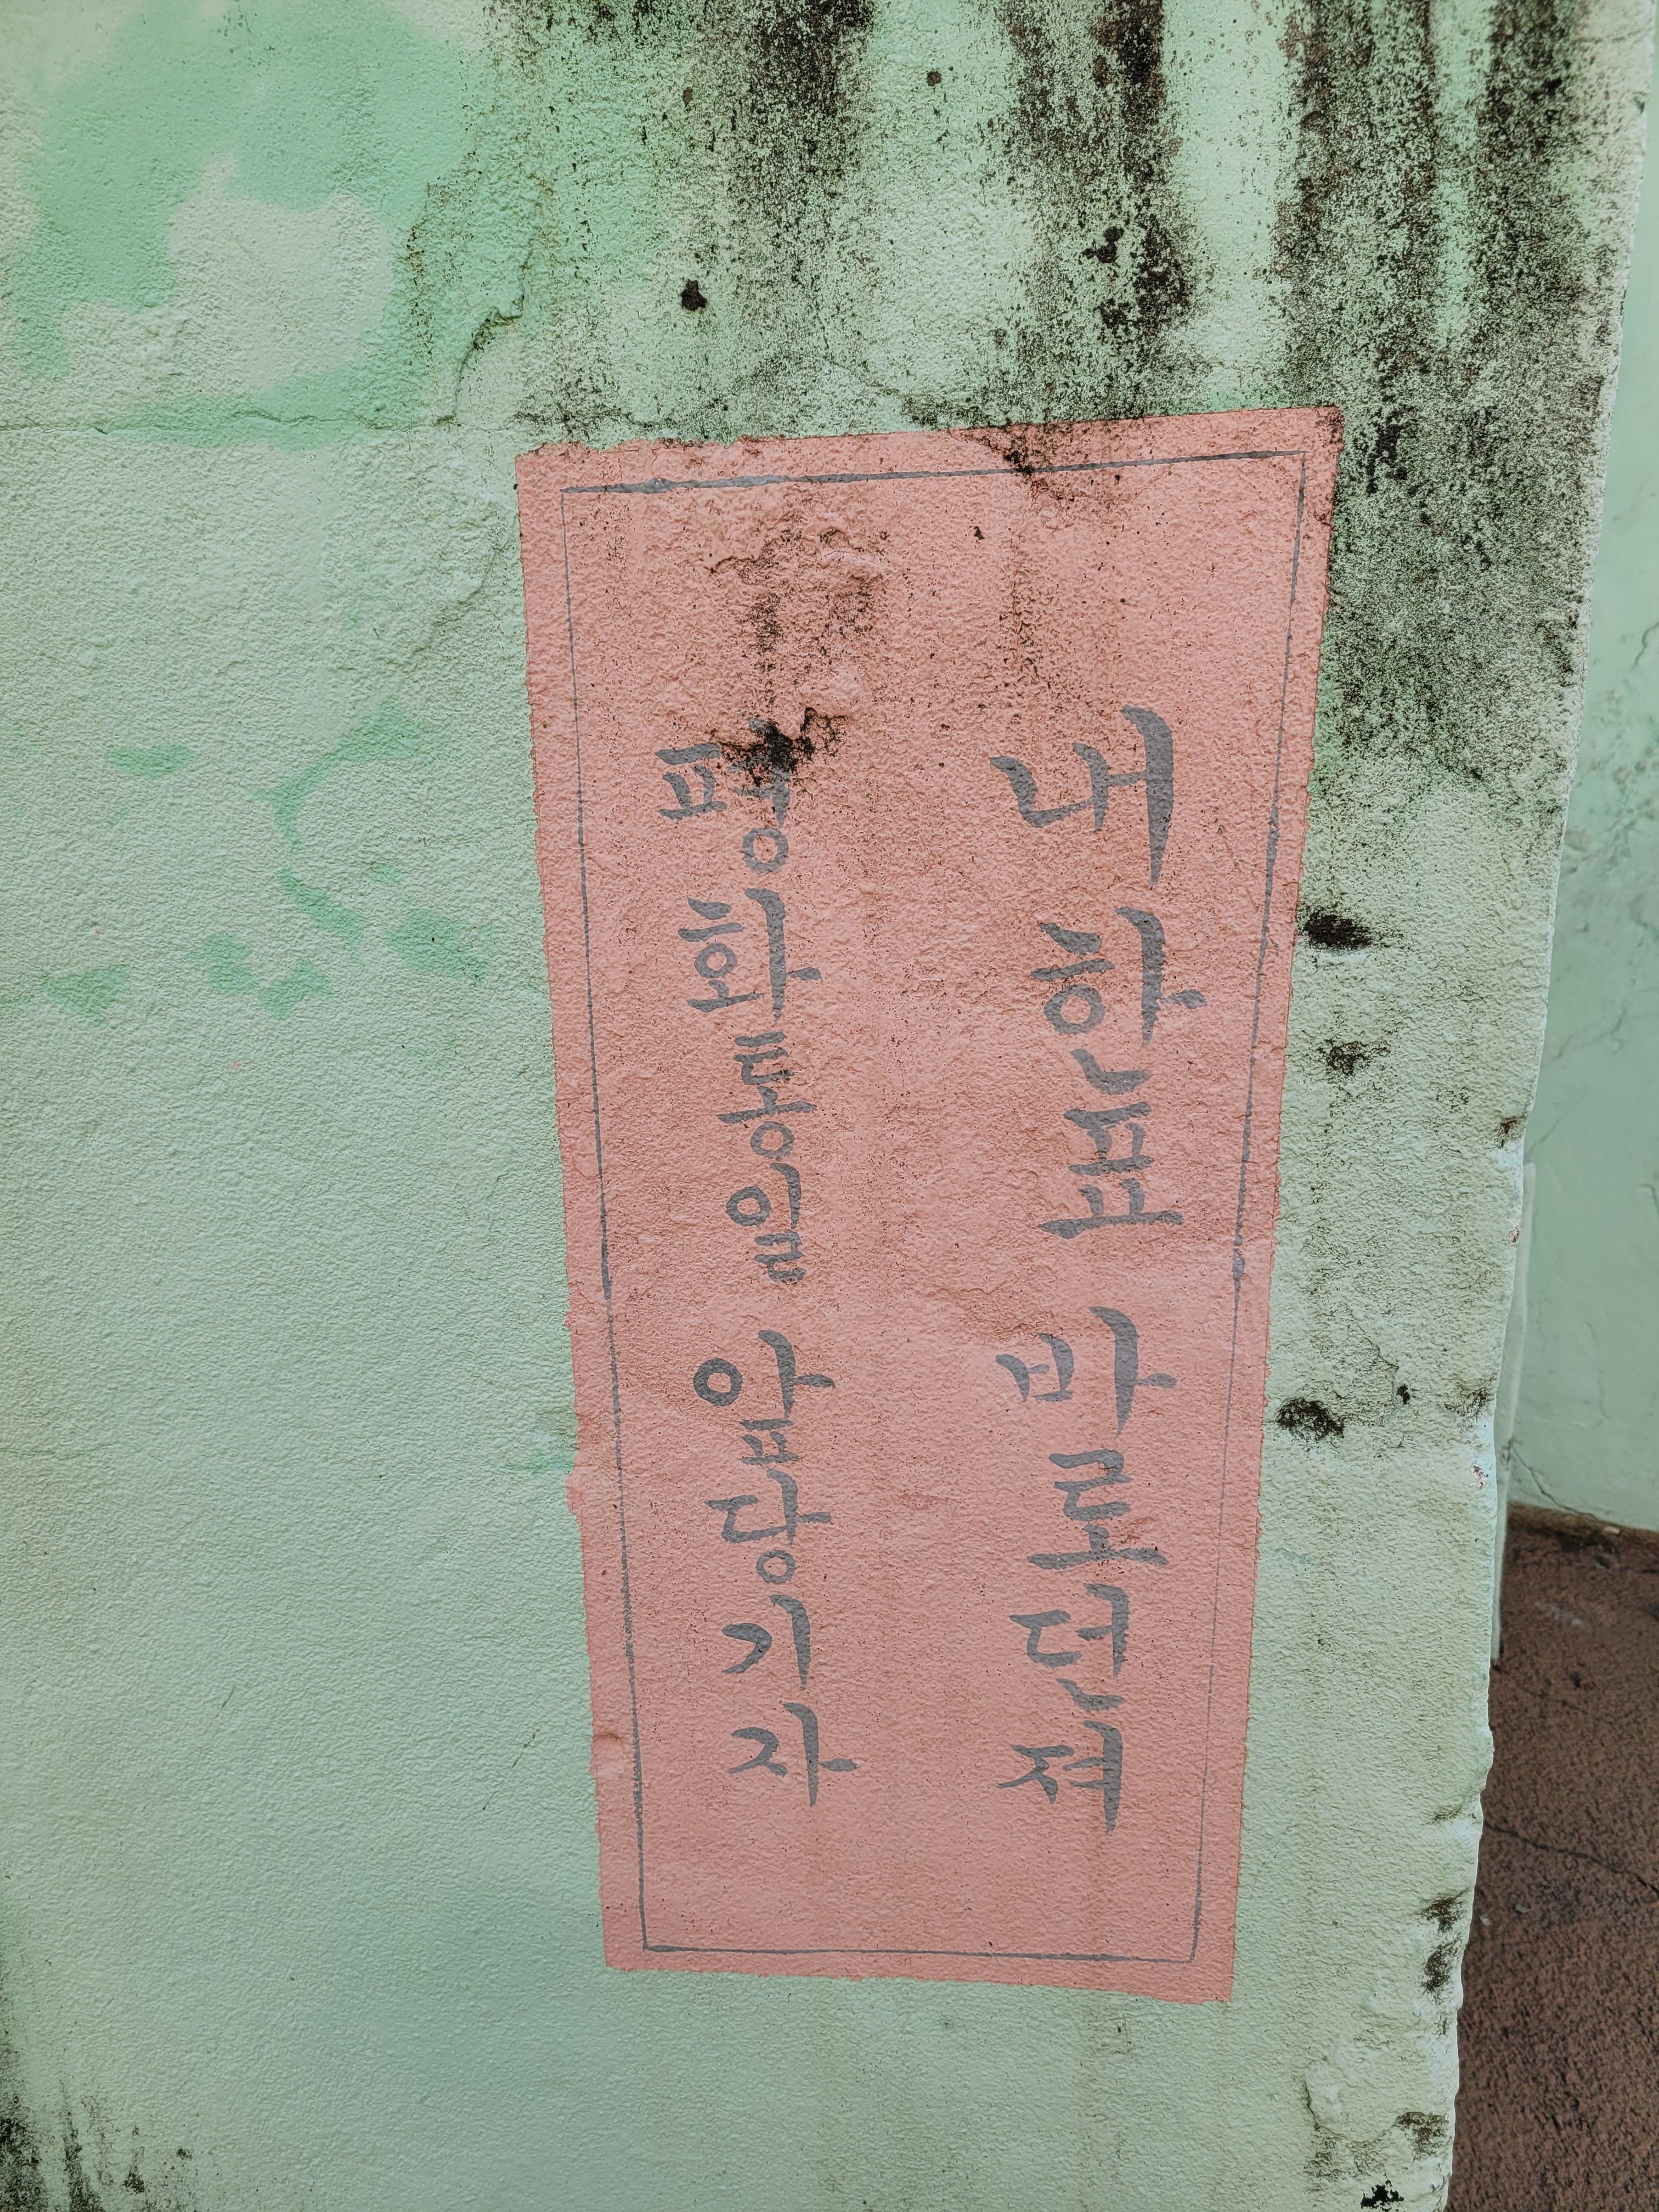 내 한표 바로던져
평화통일 앞당기자